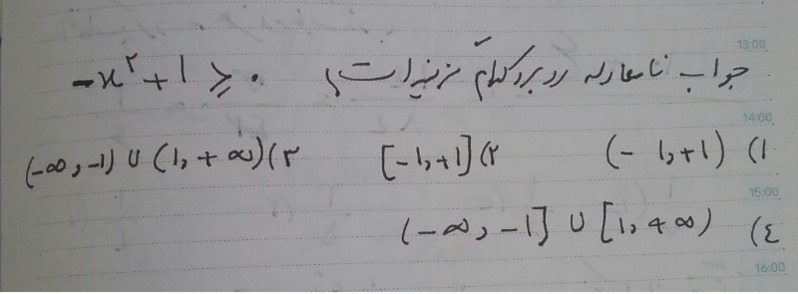 13:00
جواب نامعادله روبرو کدام گزینه است؟ -x²+1 ≥ 0
14:00
1) (-1,+1) 2) [-1,+1] 3) (-∞,-1) ∪ (1,+∞)
15:00
4) (-∞,-1] ∪ [1,+∞)
16:00